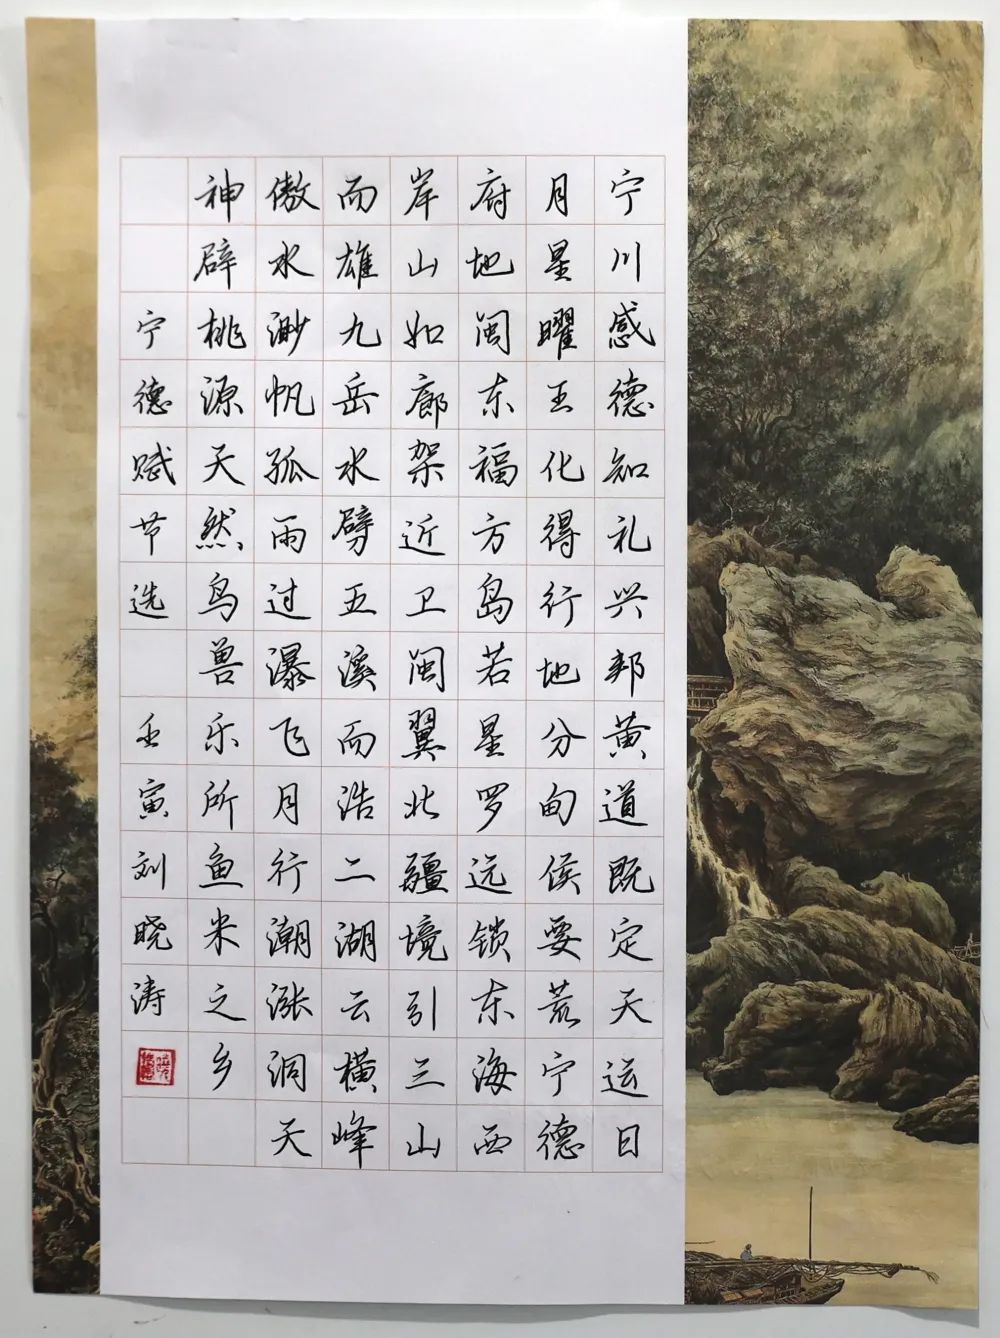 宁川感德知礼兴邦黄道既定天运日
月星曜王化得行地分甸侯要荒宁德
府地闽东福方岛若星罗远锁东海西
岸山如廊架近卫闽翼北疆境引三山
而雄九岳水劈五溪而浩二湖云横峰
傲水渺帆孤雨过瀑飞月行潮涨洞天
神辟桃源天然鸟兽乐所鱼米之乡
宁德赋节选 壬寅刘晓涛